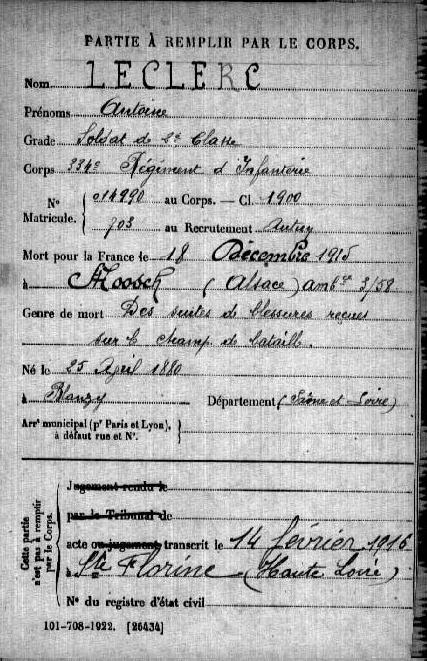 PARTIE À REMPLIR PAR LE CORPS.
Nom LECLERC
Prénoms Antoine
Grade Soldat de 2e Classe
Corps 334e Régiment d'Infanterie
N° Matricule. { 014990 au Corps. — Cl. 1900
703 au Recrutement Autun
Mort pour la France le 18 Décembre 1915
à Moosch (Alsace) ambce 3/58
Genre de mort Des suites de blessures reçues
sur le champ de bataille.
Né le 25 Avril 1880
à Blanzy Département (Saône et Loire)
Arrt municipal (pr Paris et Lyon), à défaut rue et N°. }
Cette partie n'est pas à remplir par le Corps.
Jugement rendu le
par le Tribunal de
acte ou jugement transcrit le 14 février 1916
à Ste Florine (Haute Loire)
N° du registre d'état civil
101-708-1922. [26434]